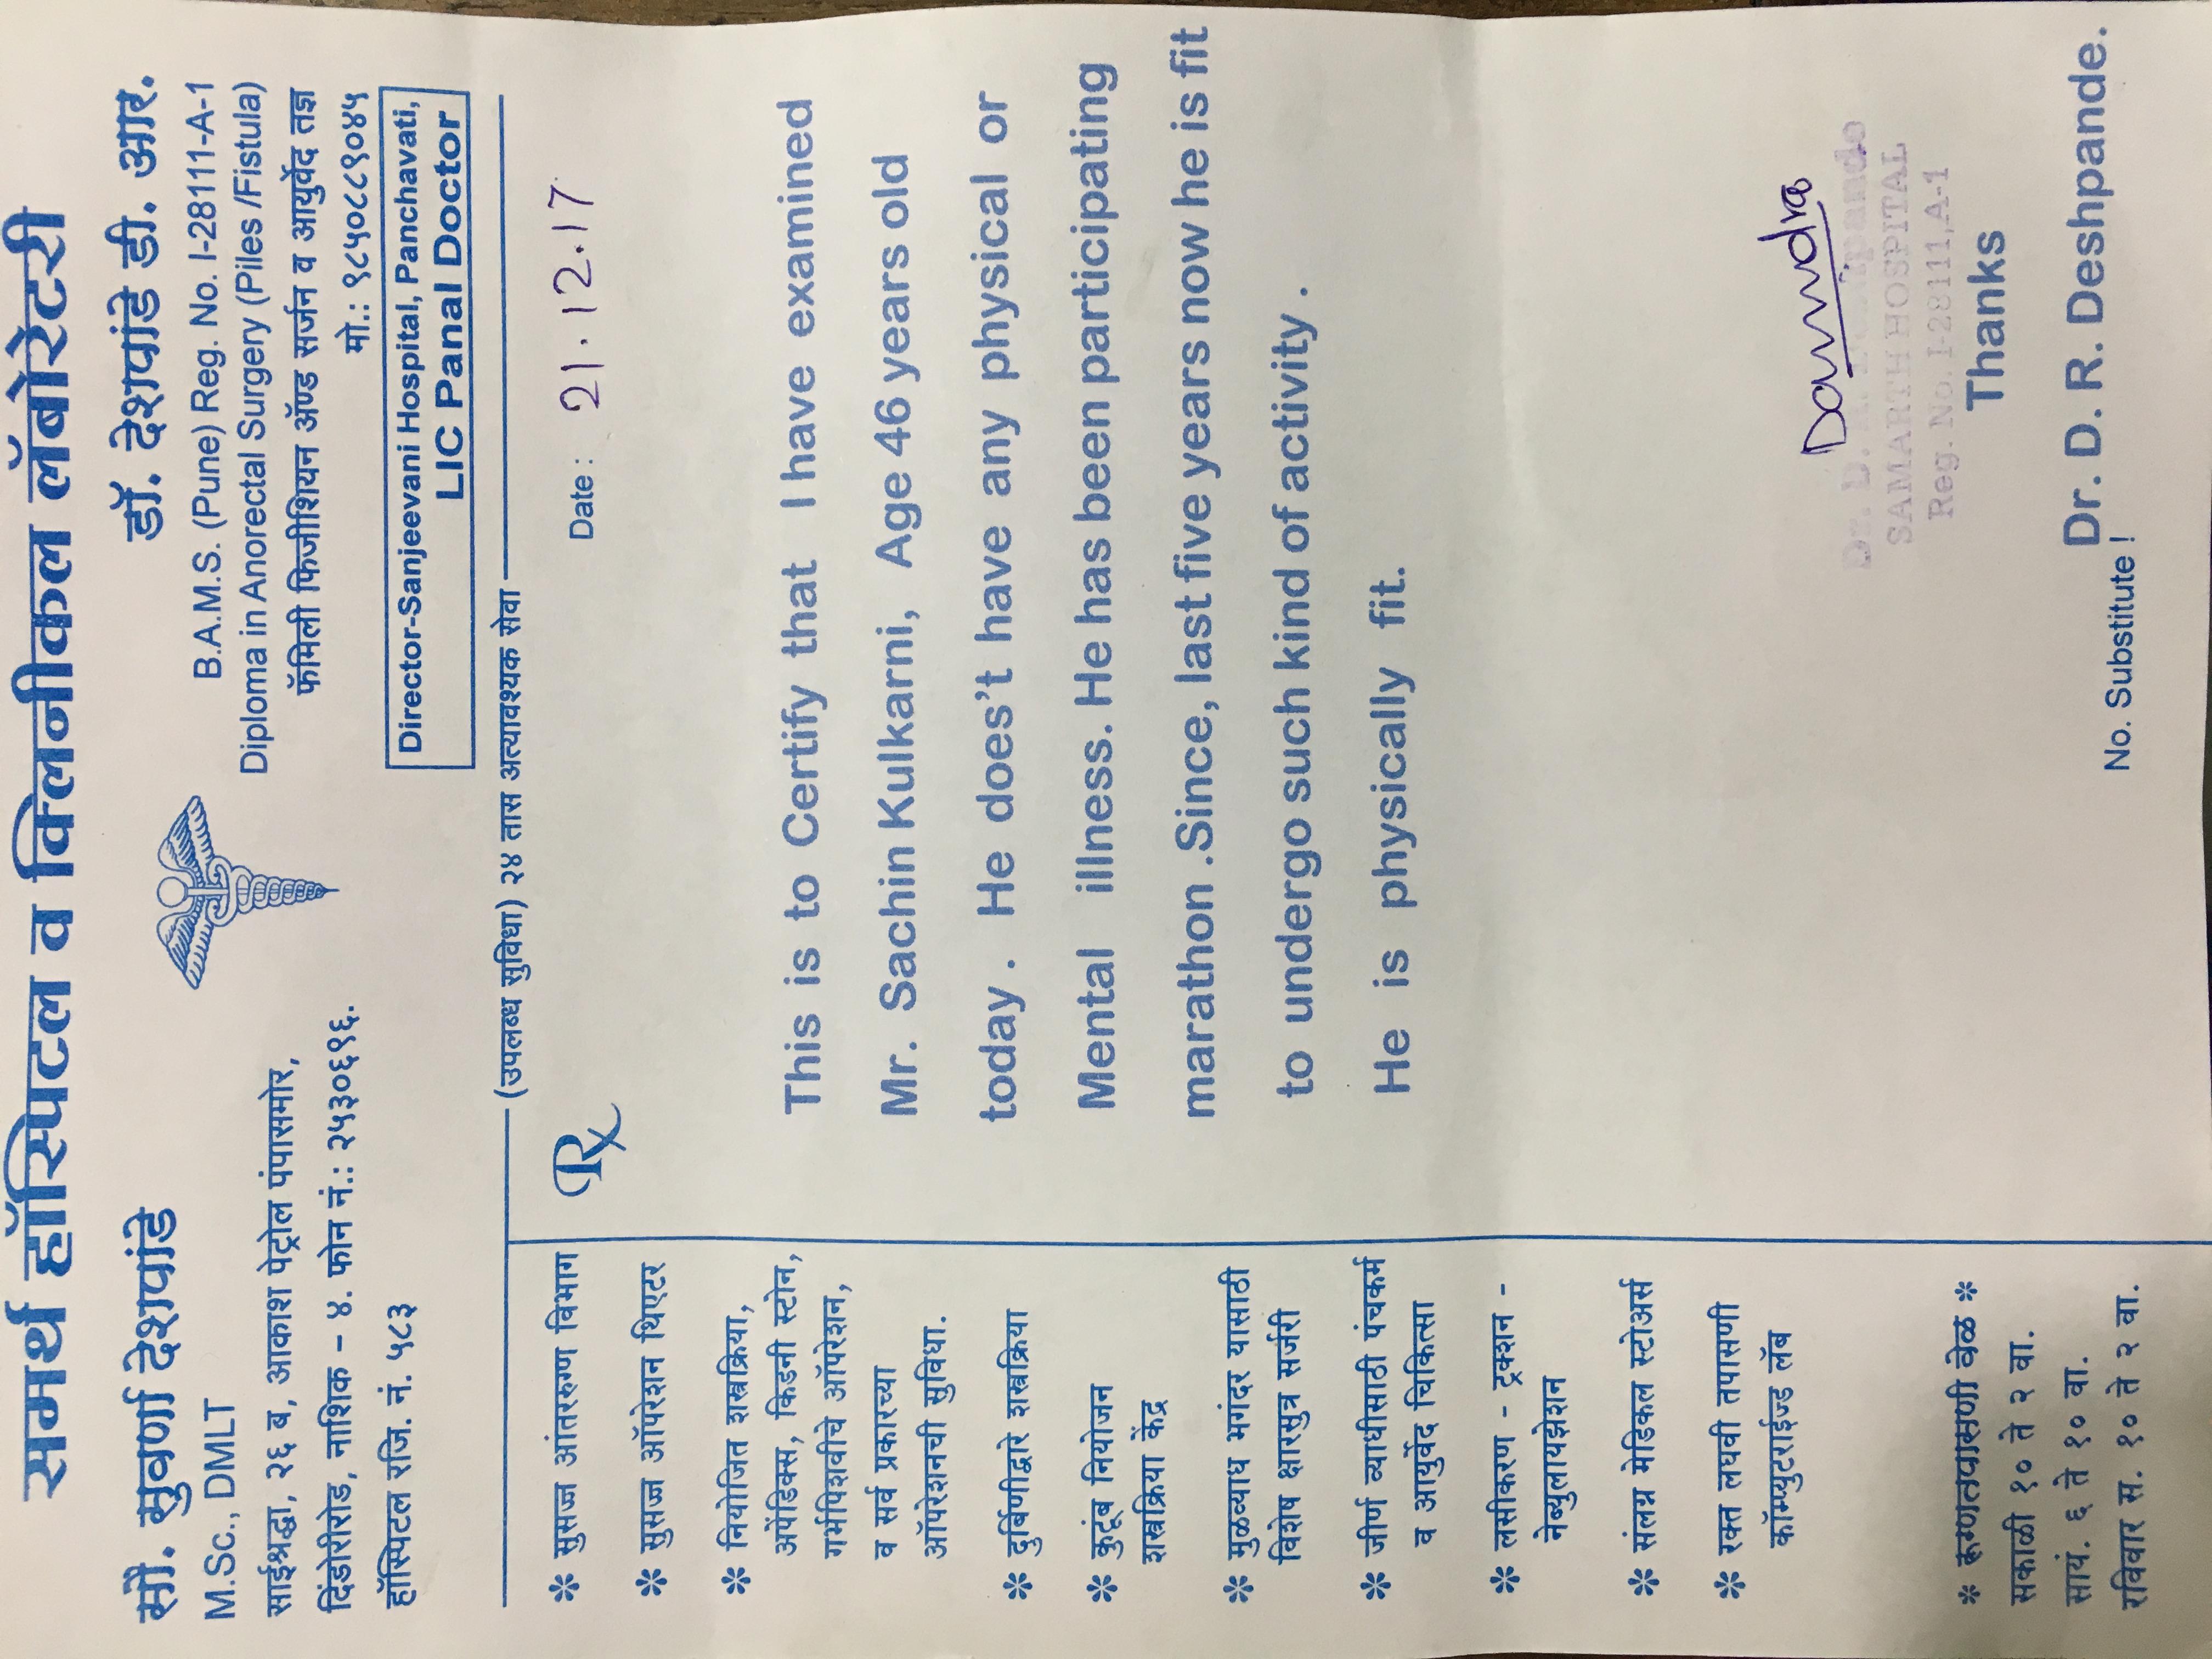 समर्थ हॉस्पिटल व क्लिनीकल लॅबोरेटरी
सौ. सुवर्णा देशपांडे
M.Sc., DMLT
साईश्रद्धा, २६ ब, आकाश पेट्रोल पंपासमोर,
दिंडोरीरोड, नाशिक - ४. फोन नं.: २५३०६९६.
हॉस्पिटल रजि. नं. ५८३
डॉ. देशपांडे डी. आर.
B.A.M.S. (Pune) Reg. No. I-28111-A-1
Diploma in Anorectal Surgery (Piles /Fistula)
फॅमिली फिजीशियन ॲण्ड सर्जन व आयुर्वेद तज्ञ
मो.: ९८५०८८९०४५
Director-Sanjeevani Hospital, Panchavati,
LIC Panal Doctor
(उपलब्ध सुविधा) २४ तास अत्यावश्यक सेवा
* सुसज्ज आंतररुग्ण विभाग
* सुसज्ज ऑपरेशन थिएटर
* नियोजित शस्त्रक्रिया,
अपेंडिक्स, किडनी स्टोन,
गर्भपिशवीचे ऑपरेशन,
व सर्व प्रकारच्या
ऑपरेशनची सुविधा.
* दुर्बिणीद्वारे शस्त्रक्रिया
* कुटूंब नियोजन
शस्त्रक्रिया केंद्र
* मुळव्याध भगंदर यासाठी
विशेष क्षारसुत्र सर्जरी
* जीर्ण व्याधीसाठी पंचकर्म
व आयुर्वेद चिकित्सा
* लसीकरण - ट्रक्शन -
नेब्युलायझेशन
* संलग्न मेडिकल स्टोअर्स
* रक्त लघवी तपासणी
कॉम्प्युटराईज्ड लॅब
* रुग्णतपासणी वेळ *
सकाळी १० ते २ वा.
सायं. ६ ते १० वा.
रविवार स. १० ते २ वा.
Rx
Date: 21.12.17
This is to Certify that I have examined
Mr. Sachin Kulkarni, Age 46 years old
today . He does't have any physical or
Mental illness. He has been participating
marathon .Since, last five years now he is fit
to undergo such kind of activity .
He is physically fit.
Dr. D. R. Deshpande
SAMARTH HOSPITAL
Reg. No. I-28111,A-1
Thanks
Dr. D. R. Deshpande.
No. Substitute!